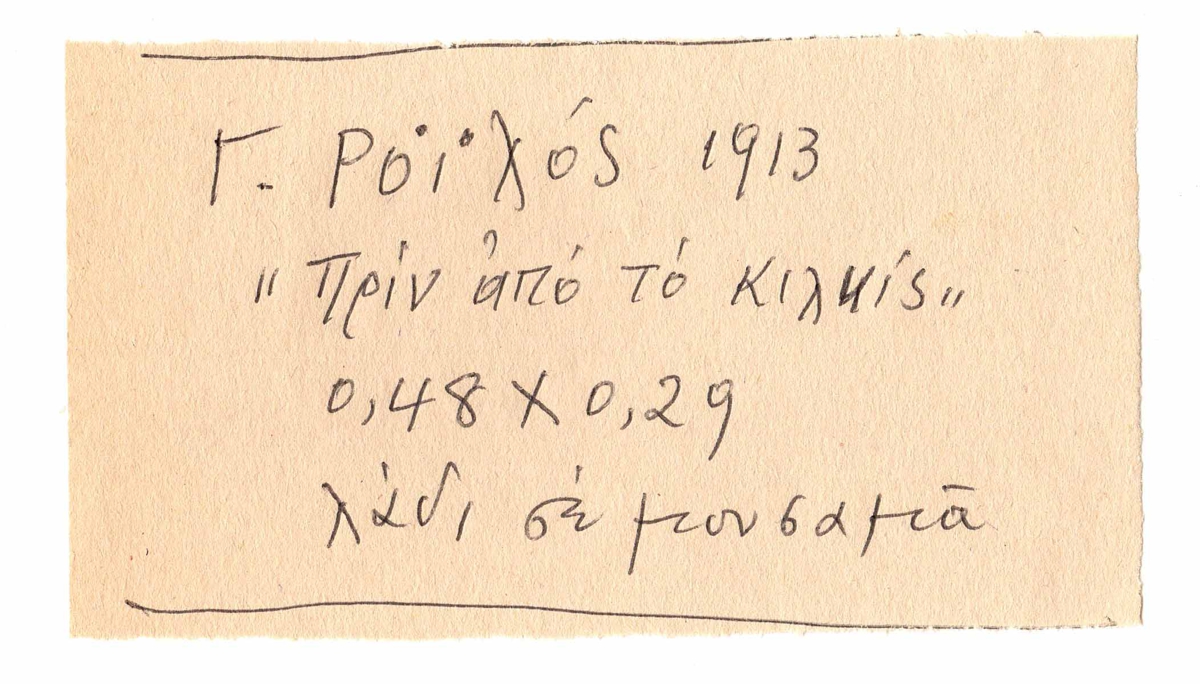 Γ. Ροϊλός 1913
"Πρίν ἀπό τό Κιλκίς"
0,48 X 0,29
λάδι σέ μουσαμᾶ